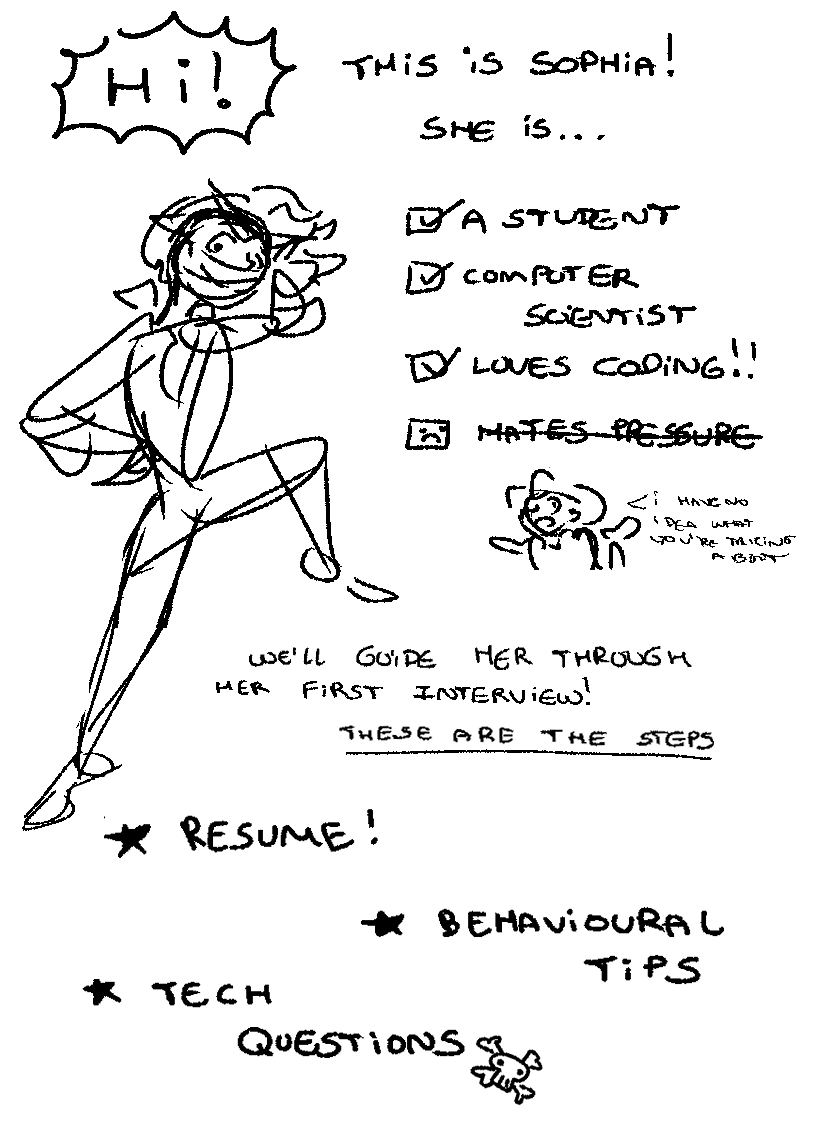 Hi!
THiS iS SOPHiA!
SHE iS...
A STUDENT
COMPUTER
SCiENTIST
LOVES CODiNG!!
HATES PRESSURE
i HAVE NO
iDEA WHAT
YOU'RE TALKING
ABOUT
WE'LL GUiDE HER THROUGH
HER FiRST INTERViEW!
THESE ARE THE STEPS
RESUME!
BEHAViOURAL
TiPS
TECH
QUESTiONS